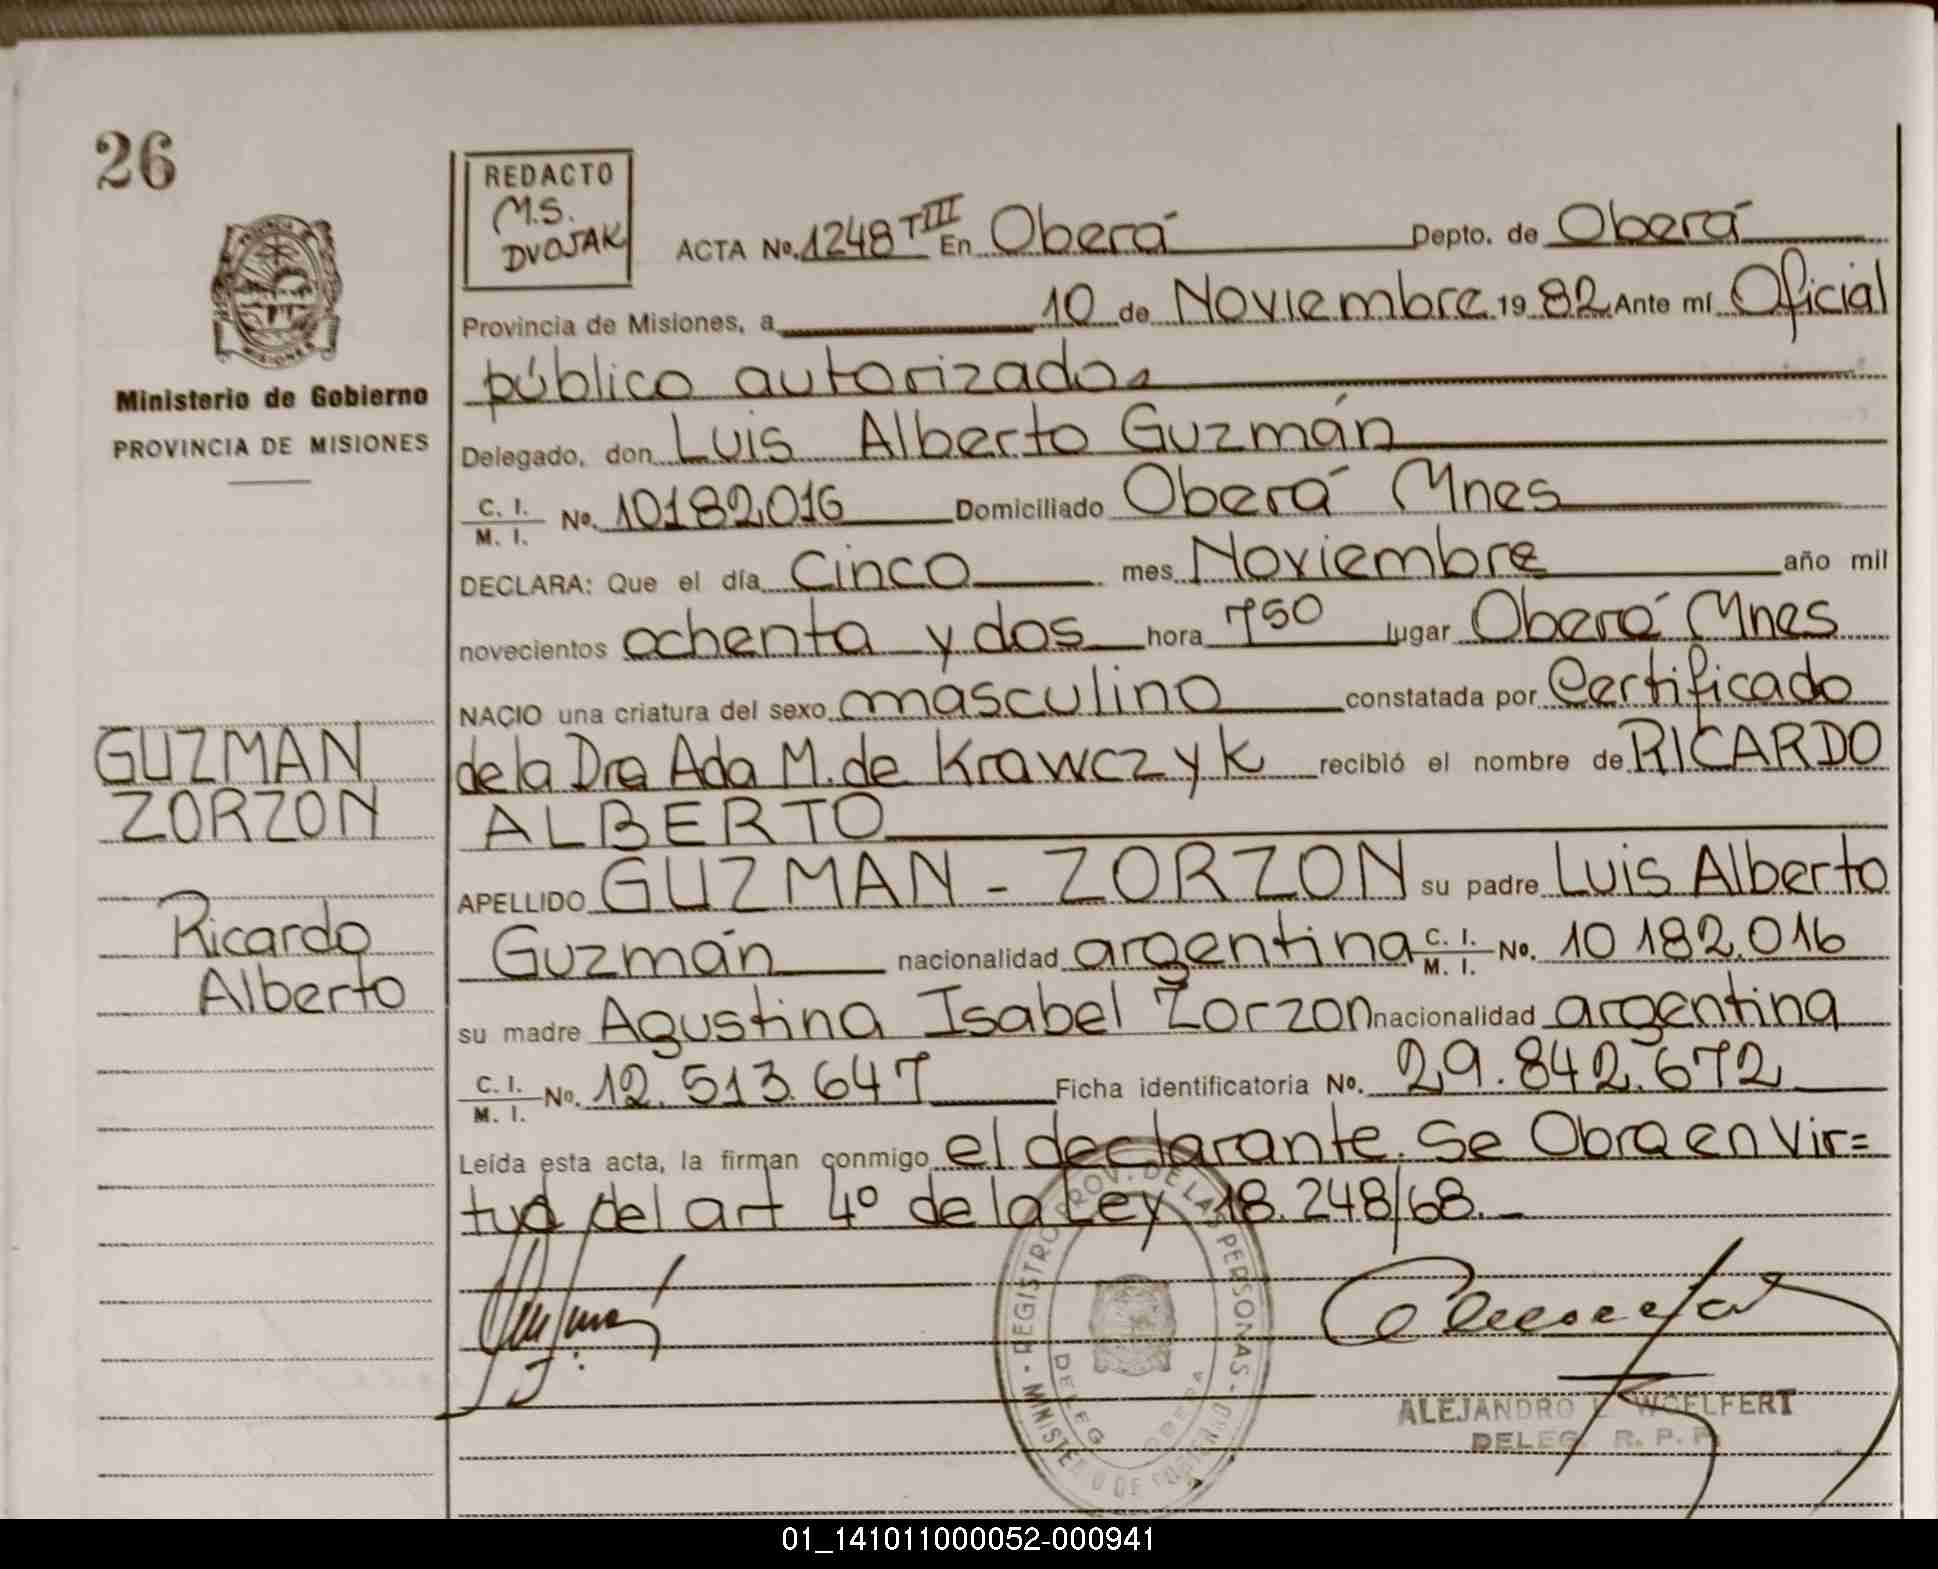 26
REDACTO
M.S.
DVOJAK
ACTA No. 1248 TIII En Oberá Depto. de Oberá
Provincia de Misiones, a 10 de Noviembre 19 82 Ante mí Oficial
público autorizado.
Ministerio de Gobierno
PROVINCIA DE MISIONES
Delegado, don Luis Alberto Guzmán
C. I. / M. I. No. 10182016 Domiciliado Oberá Mnes
DECLARA: Que el día Cinco mes Noviembre año mil
novecientos ochenta y dos hora 750 lugar Oberá Mnes
NACIO una criatura del sexo masculino constatada por Certificado
de la Dra Ada M. de Krawczyk recibió el nombre de RICARDO
ALBERTO
GUZMAN
ZORZON
Ricardo
Alberto
APELLIDO GUZMAN - ZORZON su padre Luis Alberto
Guzmán nacionalidad argentina C. I. / M. I. No. 10 182.016
su madre Agustina Isabel Zorzon nacionalidad argentina
C. I. / M. I. No. 12.513.647 Ficha identificatoria No. 29.842.672
Leída esta acta, la firman conmigo el declarante. Se Obra en Vir=
tud del art 4º de la Ley 18.248/68.-
REGISTRO PROV. DE LAS PERSONAS - MINISTERIO DE GOBIERNO
DELEG. OBERA
ALEJANDRO L. WOELFERT
DELEG. R. P. P.
MISIONES
01_141011000052-000941